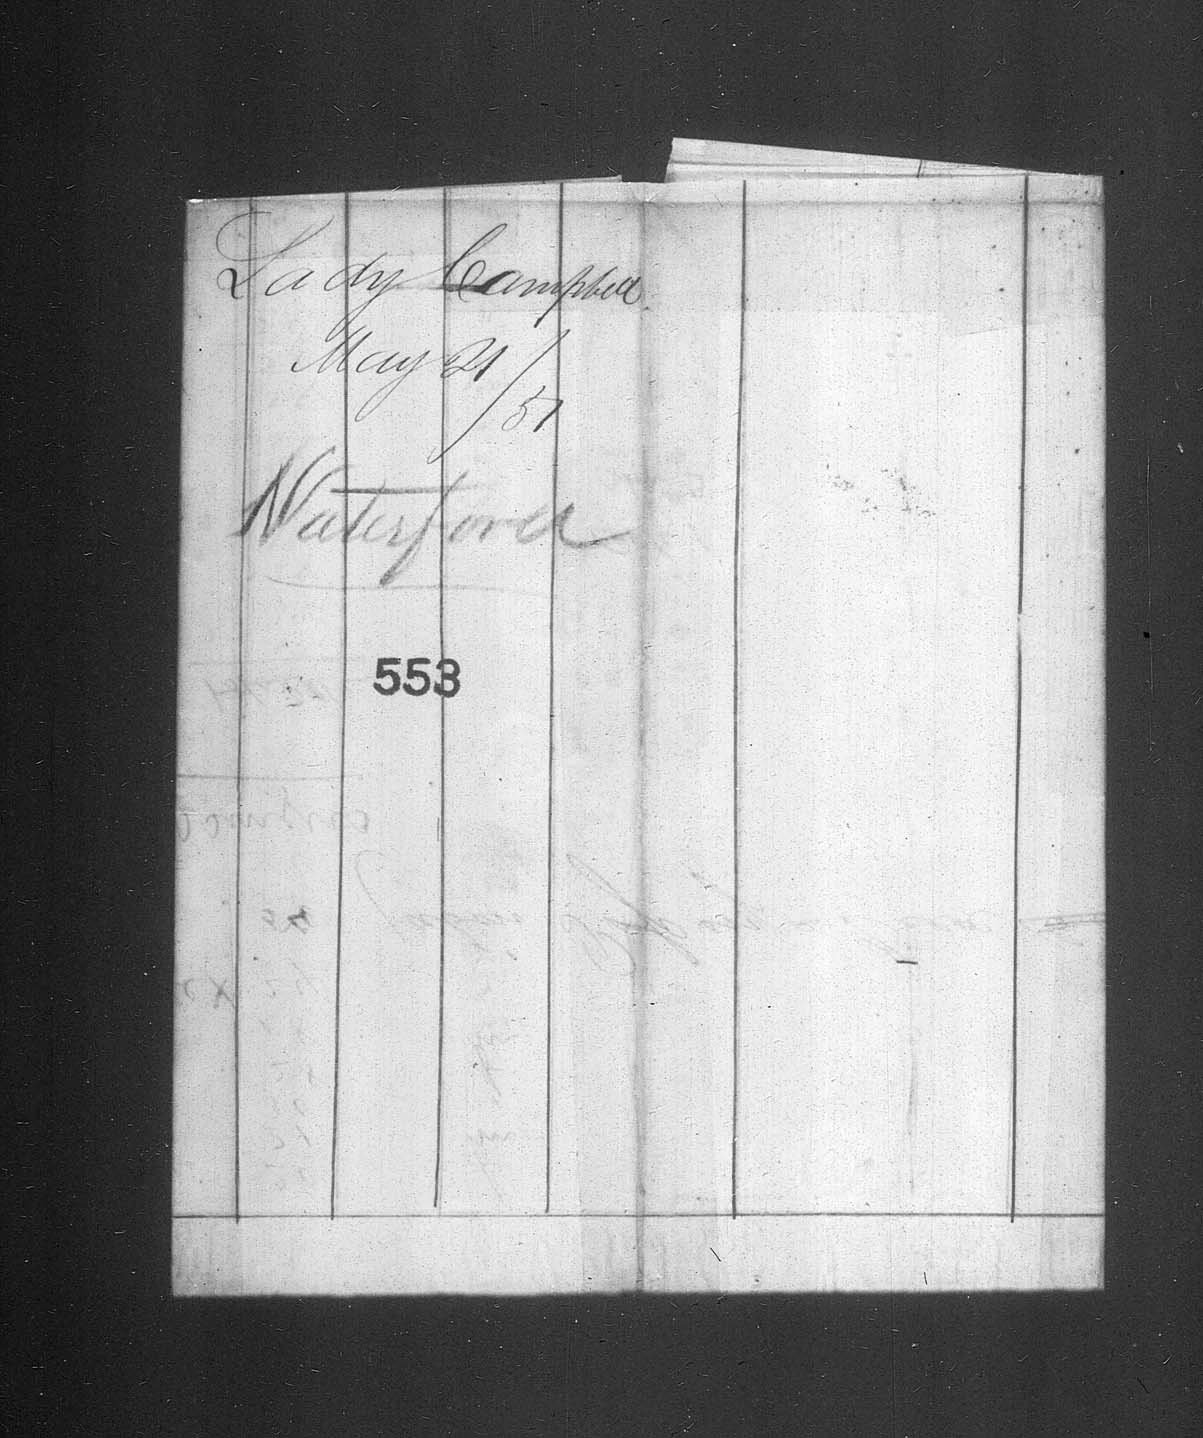 Lady Campbell
May 21/51
Waterford
553